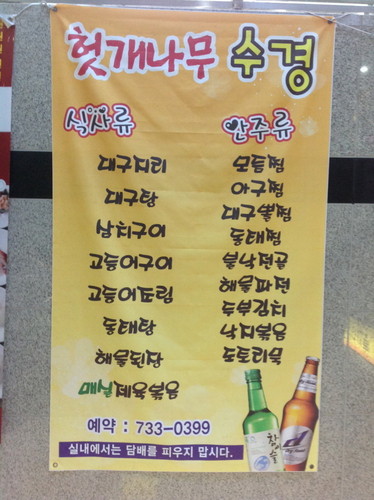 헛개나무 수경
식사류
대구지리
대구탕
삼치구이
고등어구이
고등어조림
동태탕
해물된장
매실제육볶음
안주류
모듬찜
아구찜
대구뽈찜
동태찜
불낙전골
해물파전
두부김치
낙지볶음
도토리묵
예약 : 733-0399
실내에서는 담배를 피우지 맙시다.
참이슬